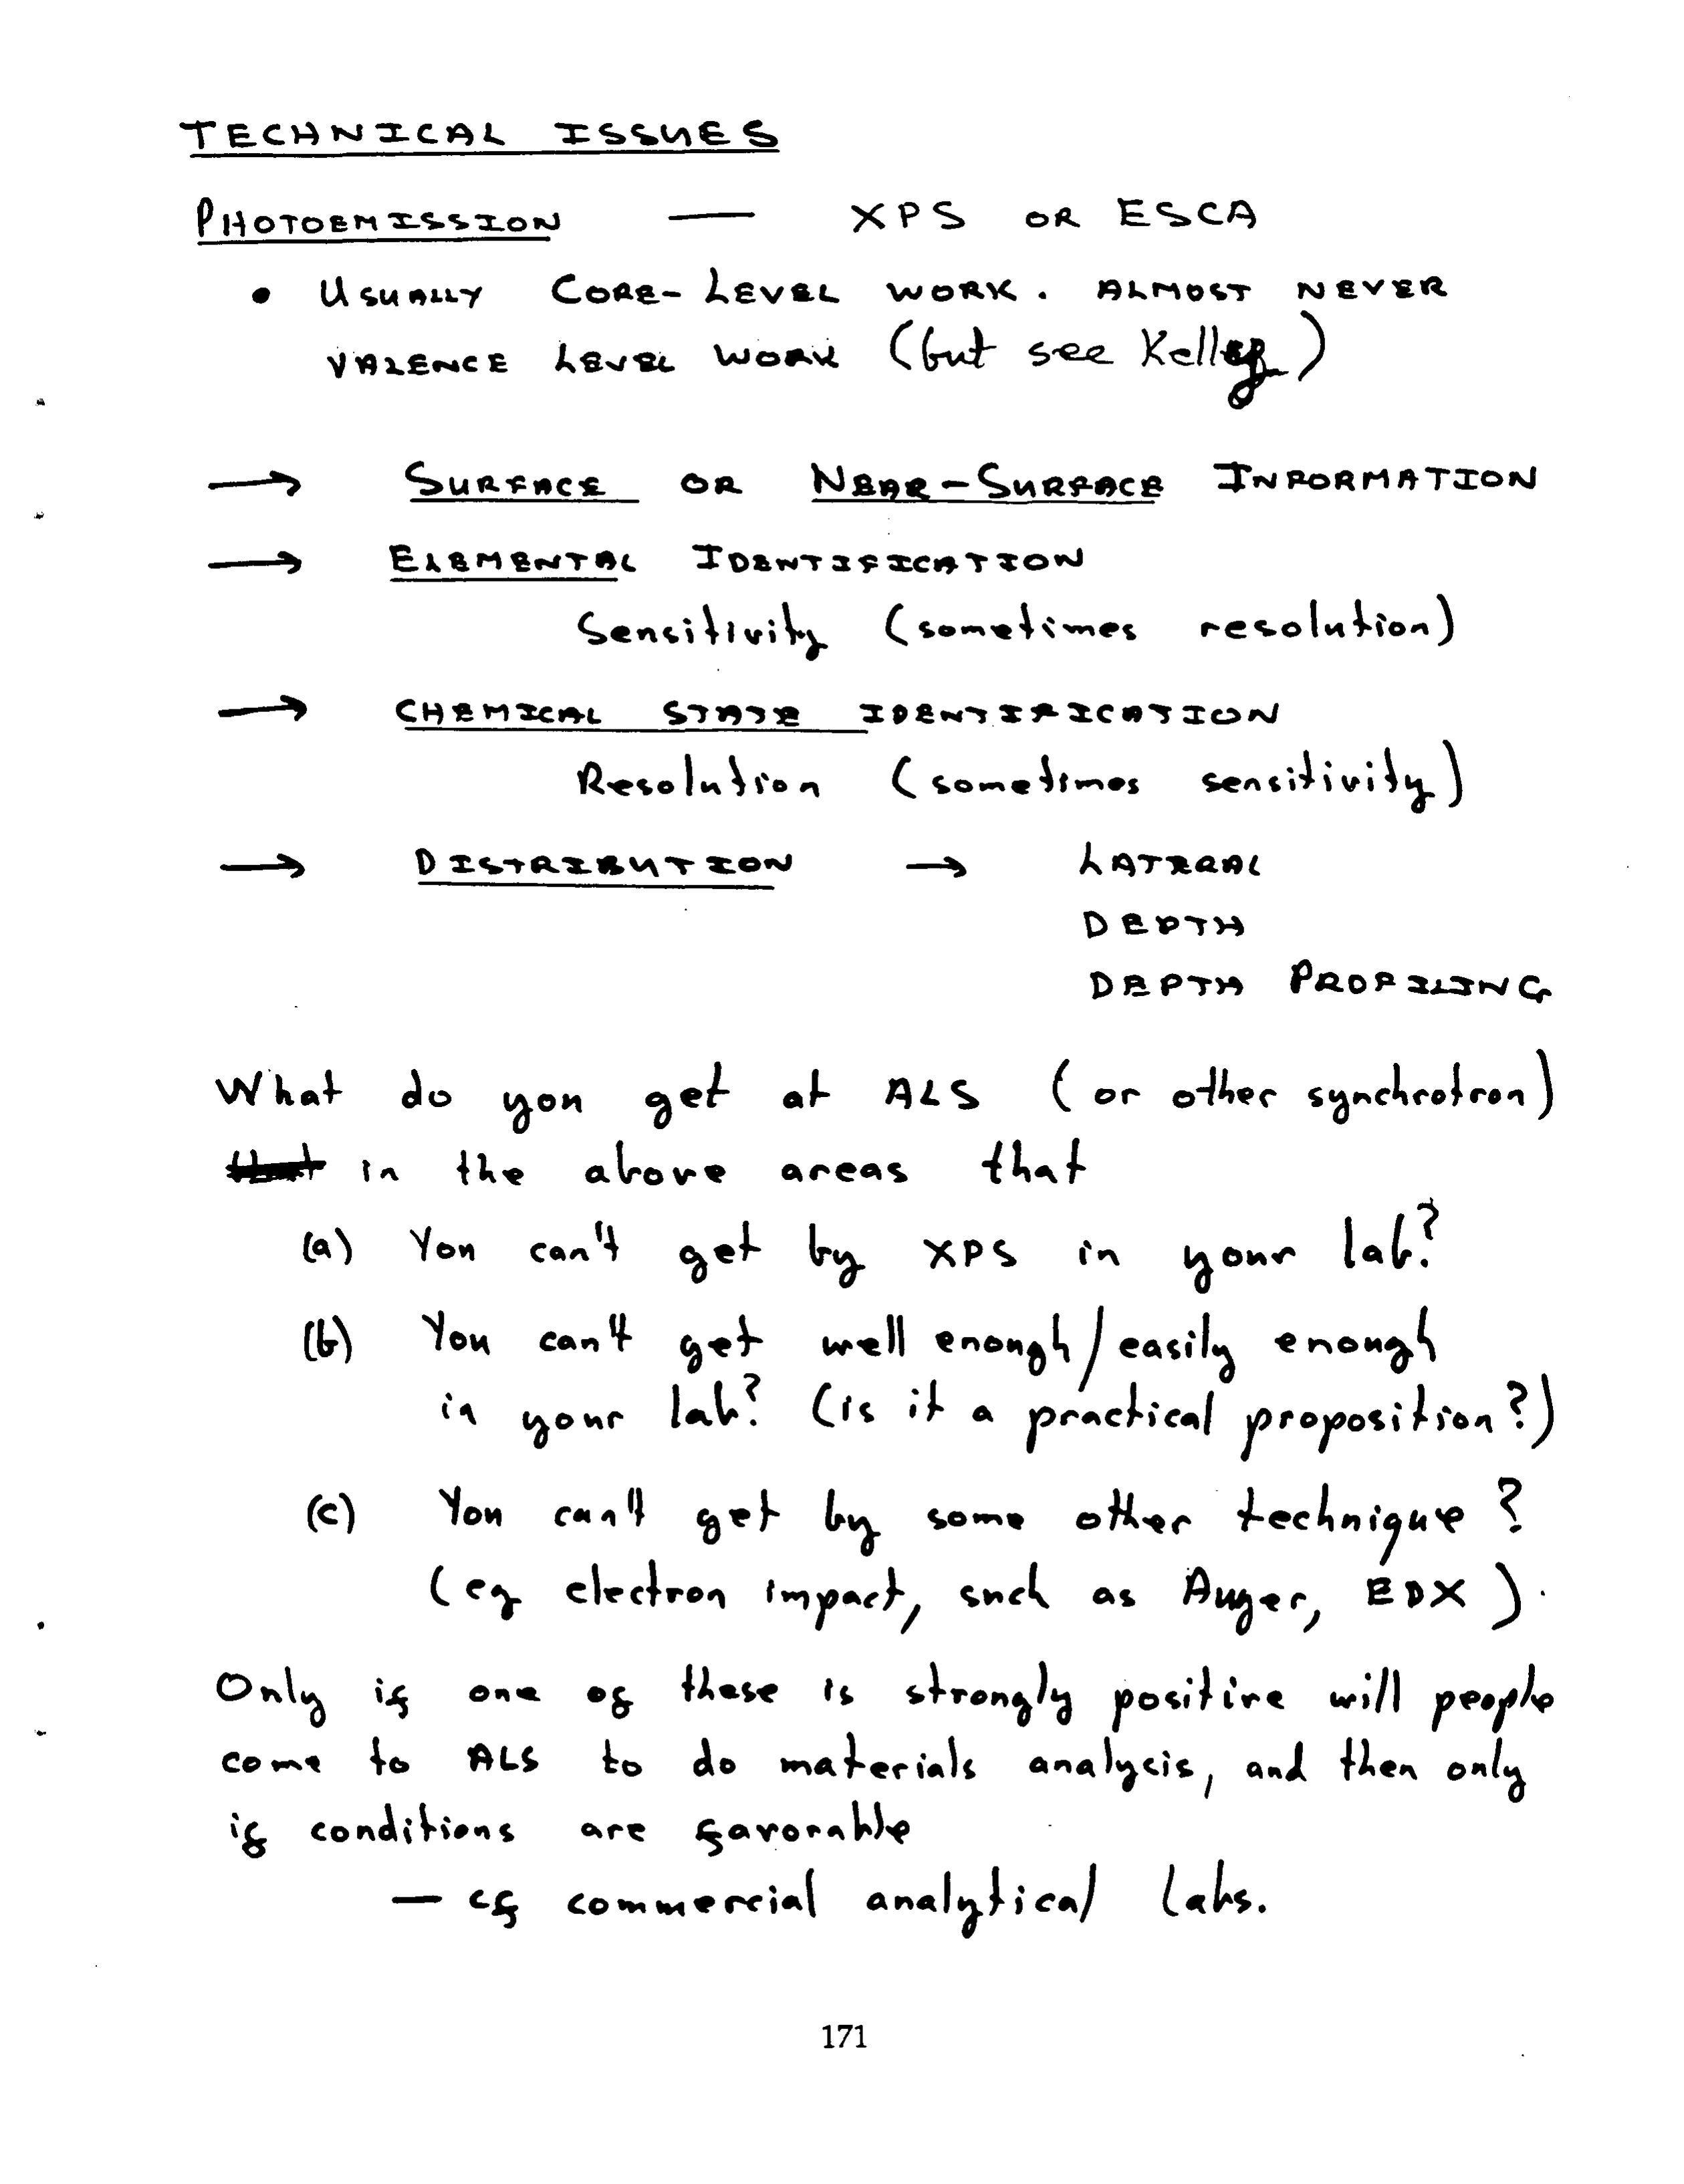 TECHNICAL ISSUES
PHOTOEMISSION — XPS OR ESCA
• USUALLY CORE-LEVEL WORK. ALMOST NEVER
VALENCE LEVEL WORK (but see Kelley)
→ SURFACE OR NEAR-SURFACE INFORMATION
→ ELEMENTAL IDENTIFICATION
Sensitivity (sometimes resolution)
→ CHEMICAL STATE IDENTIFICATION
Resolution (sometimes sensitivity)
→ DISTRIBUTION → LATERAL
DEPTH
DEPTH PROFILING
What do you get at ALS (or other synchrotron)
in the above areas that
(a) You can't get by XPS in your lab?
(b) You can't get well enough/easily enough
in your lab? (is it a practical proposition?)
(c) You can't get by some other technique?
(eg electron impact, such as Auger, EDX).
Only if one of these is strongly positive will people
come to ALS to do materials analysis, and then only
if conditions are favorable
— cf commercial analytical labs.
171